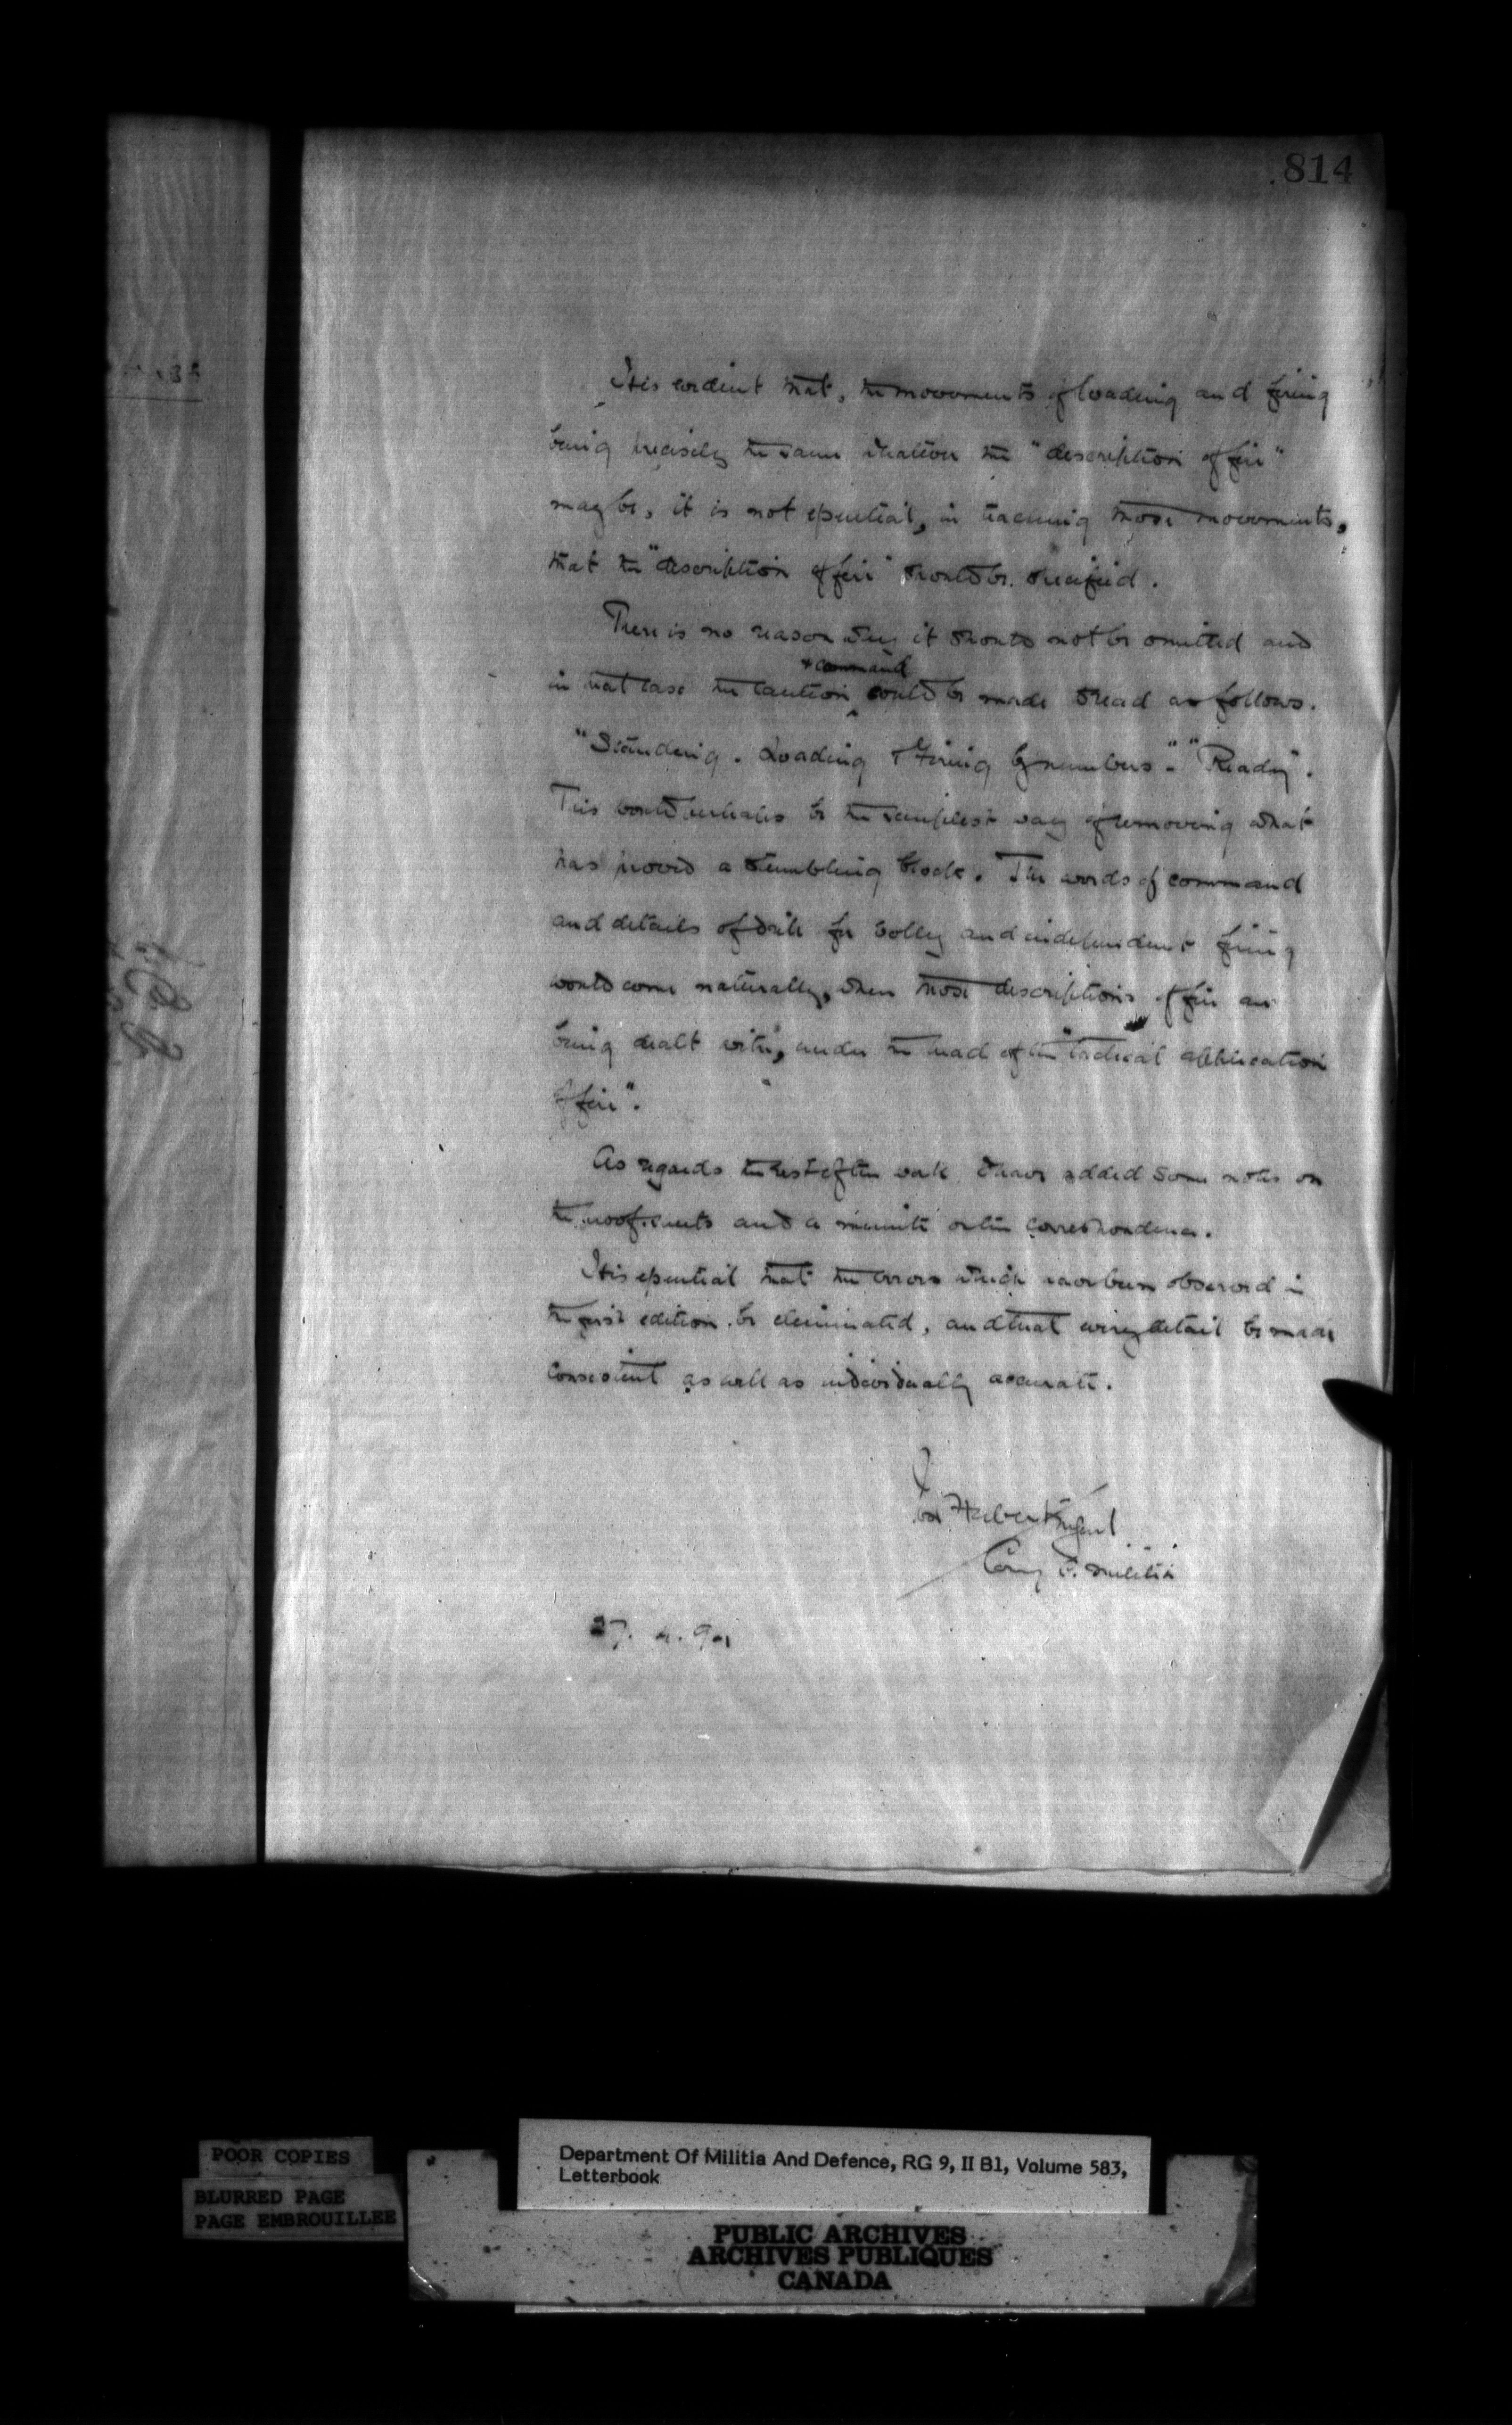 814
It is evident that, the movements of loading and firing
being precisely the same whatever the "description of fire"
may be, it is not essential, in teaching those movements,
that the "description of fire" should be specified.
There is no reason why it should not be omitted and
+ command
in that case the caution could be made to read as follows.
"Standing. Loading & Firing by numbers". "Ready".
This would perhaps be the simplest way of removing what
has proved a stumbling block. The words of command
and details of drill for volley and independent firing
would come naturally, when those descriptions of fire are
being dealt with, under the head of the "tactical application
of fire".
As regards the rest of the work I have added some notes on
the proof sheets and a minute on the correspondence.
It is essential that the errors which have been observed in
the first edition be eliminated, and that every detail be made
consistent as well as individually accurate.
Ivor Herbert M Genl
Comg C. Militia
27. 4. 91
POOR COPIES
BLURRED PAGE
PAGE EMBROUILLEE
Department Of Militia And Defence, RG 9, II B1, Volume 583,
Letterbook
PUBLIC ARCHIVES
ARCHIVES PUBLIQUES
CANADA